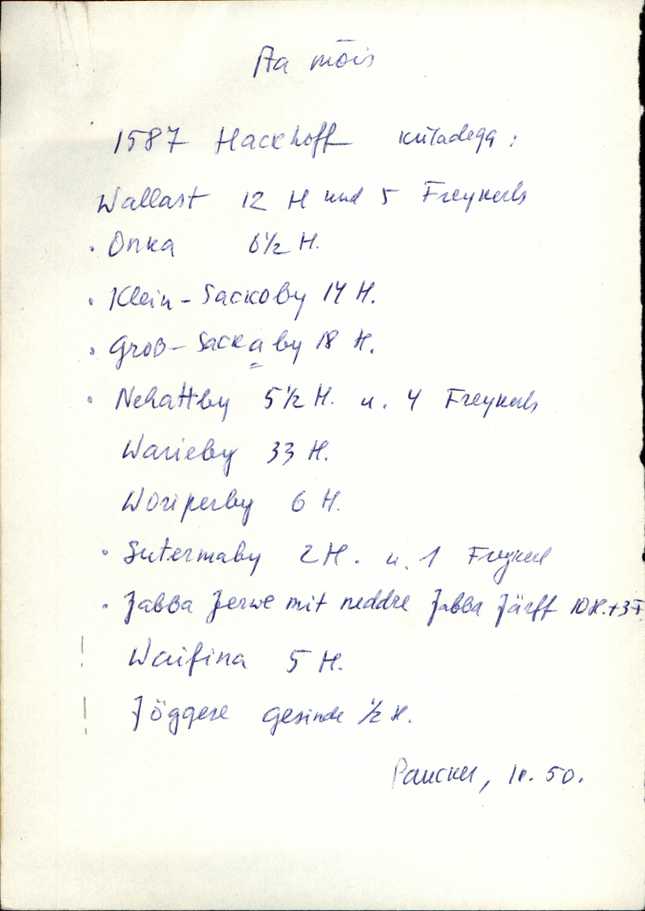 Aa mõis
1587 Hackhoff küladega:
Wallast 12 H und 5 Freykerls
• Onka 6½ H.
• Klein-Sackoby 14 H.
• Groß-Sackaby 18 H.
• Nehattby 5½ H. u. 4 Freykerls
Warieby 33 H.
Woriperby 6 H.
• Sutermaby 2 H. u. 1 Freykerl
• Jabba Jerwe mit neddre Jabba Järff 10 H.+3 F
Waifina 5 H.
Jöggere gesinde ½ H.
Paucker, 50.